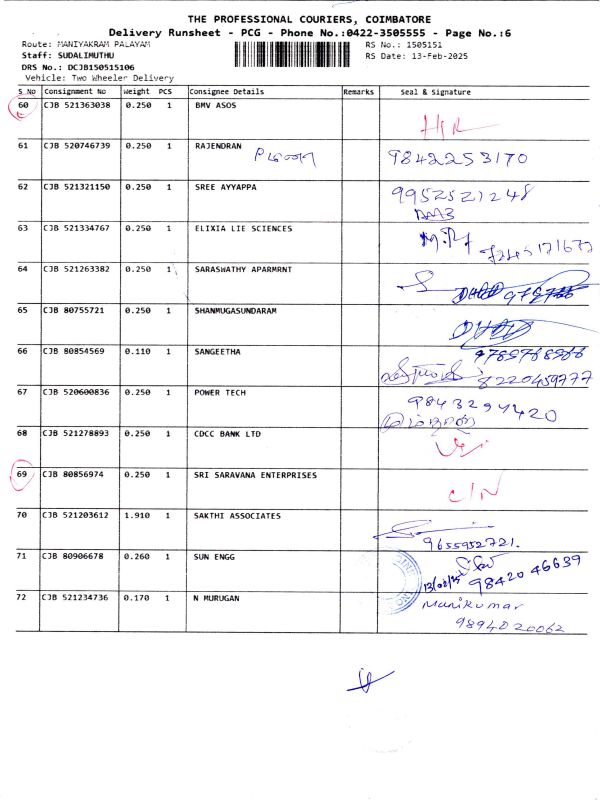 THE PROFESSIONAL COURIERS, COIMBATORE
Delivery Runsheet - PCG - Phone No.:0422-3505555 - Page No.:6
Route: MANIYAKRAM PALAYAM RS No.: 1505151
Staff: SUDALIMUTHU RS Date: 13-Feb-2025
DRS No.: DCJB150515106
Vehicle: Two Wheeler Delivery
S No Consignment No Weight PCS Consignee Details Remarks Seal & Signature
60 CJB 521363038 0.250 1 BMV ASOS
61 CJB 520746739 0.250 1 RAJENDRAN
9842253170
62 CJB 521321150 0.250 1 SREE AYYAPPA
9952521248
63 CJB 521334767 0.250 1 ELIXIA LIE SCIENCES
64 CJB 521263382 0.250 1 SARASWATHY APARMRNT
65 CJB 80755721 0.250 1 SHANMUGASUNDARAM
66 CJB 80854569 0.110 1 SANGEETHA
8220459777
67 CJB 520600836 0.250 1 POWER TECH
9843294420
68 CJB 521278893 0.250 1 CDCC BANK LTD
69 CJB 80856974 0.250 1 SRI SARAVANA ENTERPRISES
C/N
70 CJB 521203612 1.910 1 SAKTHI ASSOCIATES
9655952721.
71 CJB 80906678 0.260 1 SUN ENGG
98420 46639
72 CJB 521234736 0.170 1 N MURUGAN
Manikumar
9894020062